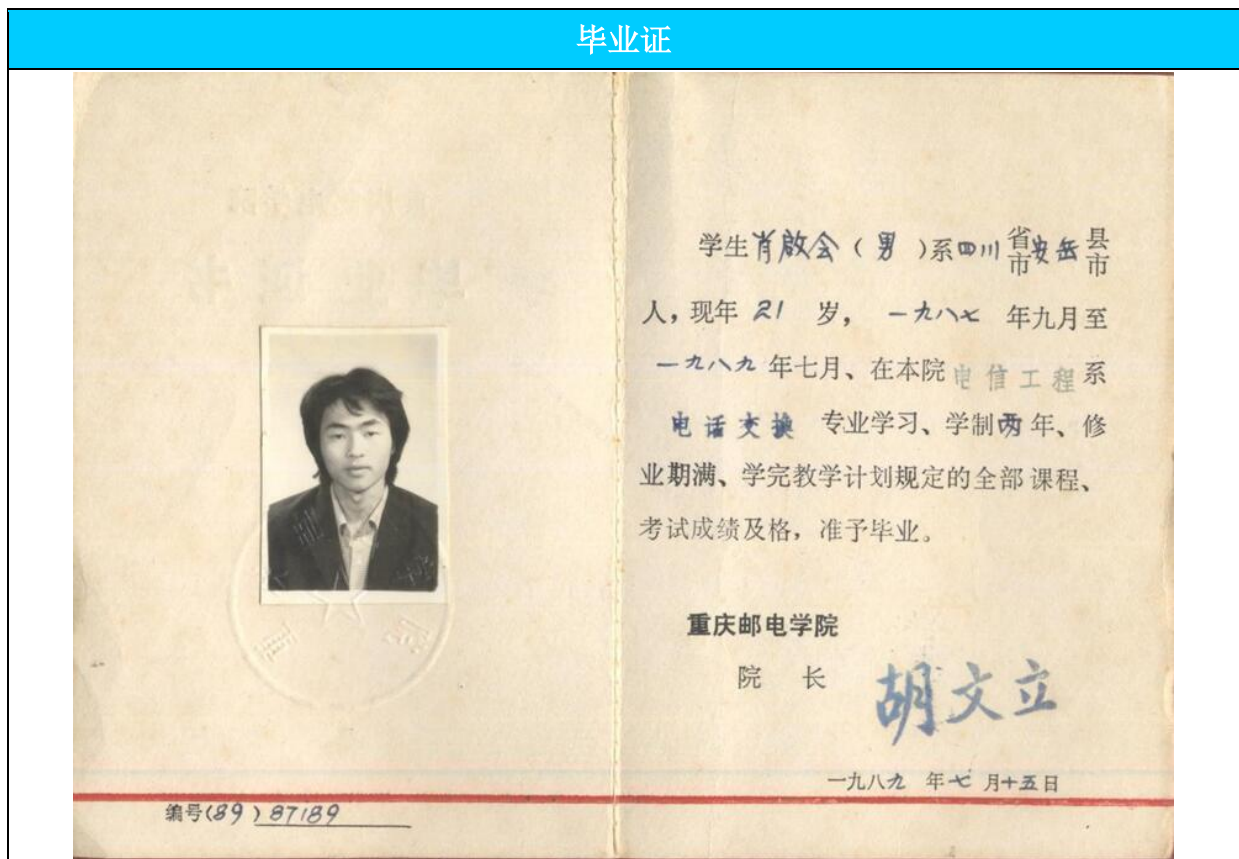 毕业证
学生肖啟会(男)系四川省市安岳县市
人,现年 21 岁, 一九八七 年九月至
一九八九 年七月、在本院电信工程系
电话交换 专业学习、学制两年、修
业期满、学完教学计划规定的全部课程、
考试成绩及格,准予毕业。
重庆邮电学院
院 长 胡文立
一九八九 年七月十五日
编号(89)87189